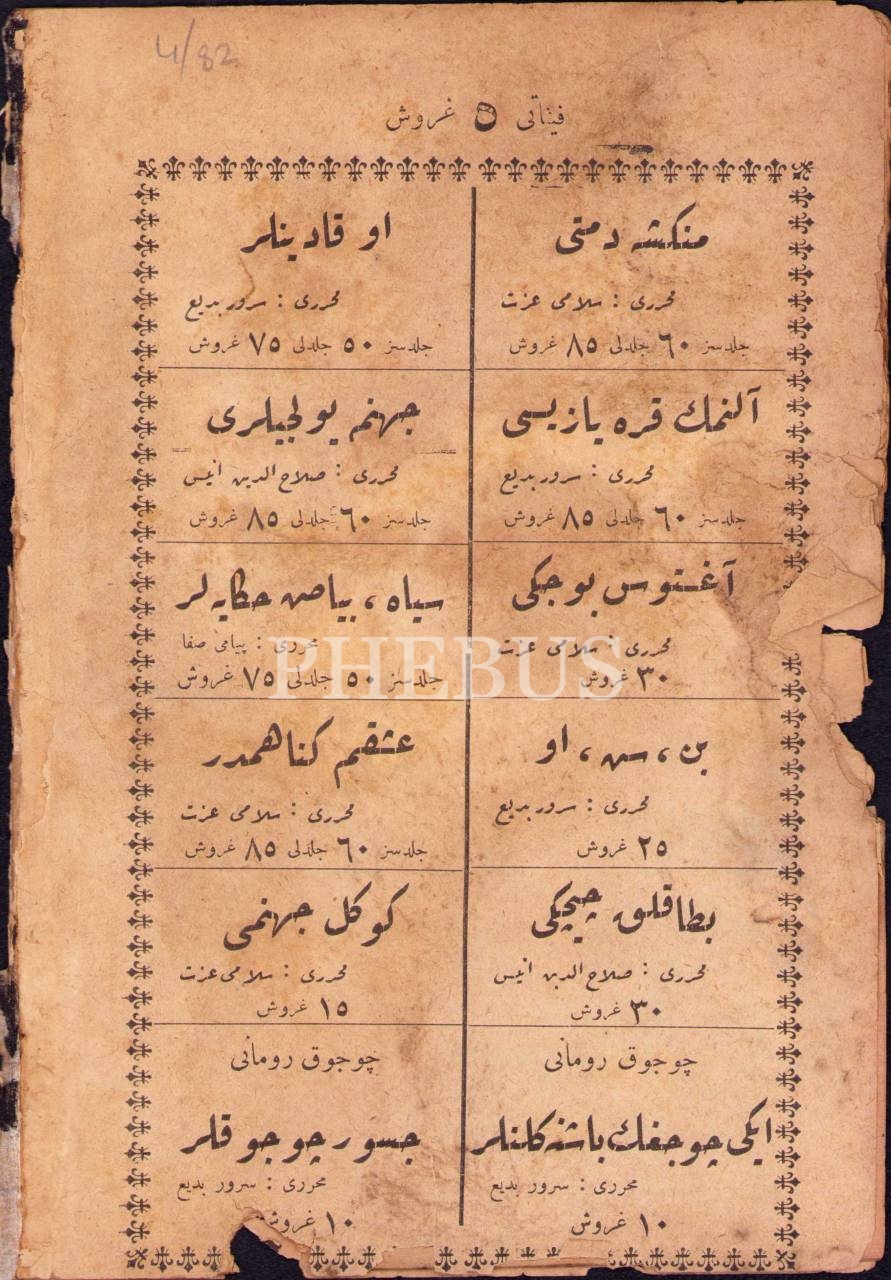 4/82
فیئاتی ٥ غروش
منکشه دمتی
محرری : سلامی عزت
جلدسز ٦٠ جلدلی ٨٥ غروش
او قادینلر
محرری : سرور بدیع
جلدسز ٥٠ جلدلی ٧٥ غروش
آلنمك قره یازیسی
محرری : سرور بدیع
جلدسز ٦٠ جلدلی ٨٥ غروش
جهنم یولجیلری
محرری : صلاح الدین انیس
جلدسز ٦٠ جلدلی ٨٥ غروش
آغستوس بوجکی
محرری : سلامی عزت
٣٠ غروش
سیاه ، بیاض حکایه لر
محرری : پیامی صفا
جلدسز ٥٠ جلدلی ٧٥ غروش
PHEBUS
بن ، سن ، او
محرری : سرور بدیع
٢٥ غروش
عشقم کناهمدر
محرری : سلامی عزت
جلدسز ٦٠ جلدلی ٨٥ غروش
بطاقلق چیچکی
محرری : صلاح الدین انیس
٣٠ غروش
کوکل جهنمی
محرری : سلامی عزت
١٥ غروش
چوجوق رومانی
ایکی چوجغك باشنه کلنلر
محرری : سرور بدیع
١٠ غروش
چوجوق رومانی
جسور چوجوقلر
محرری : سرور بدیع
١٠ غروش